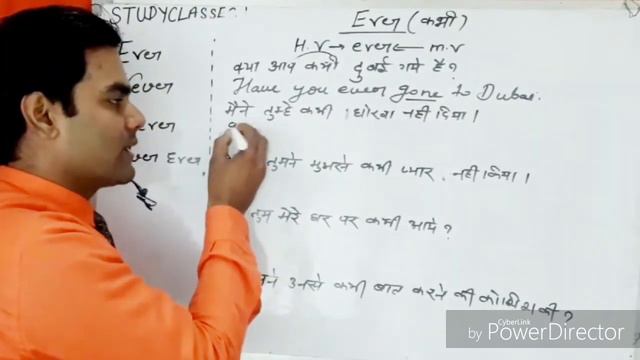 STUDYCLASSES
Ever (कभी)
H.V → ever ← m.v
Ever
क्या आप कभी दुबई गये है?
Have you ever gone to Dubai.
मैने तुम्हे कभी धोखा नही दिया।
ever
Ever Ever
तुमने मुझसे कभी प्यार नही किया।
तुम मेरे घर पर कभी आये?
उनसे कभी बात करने की कोशिश की?
CyberLink
by PowerDirector